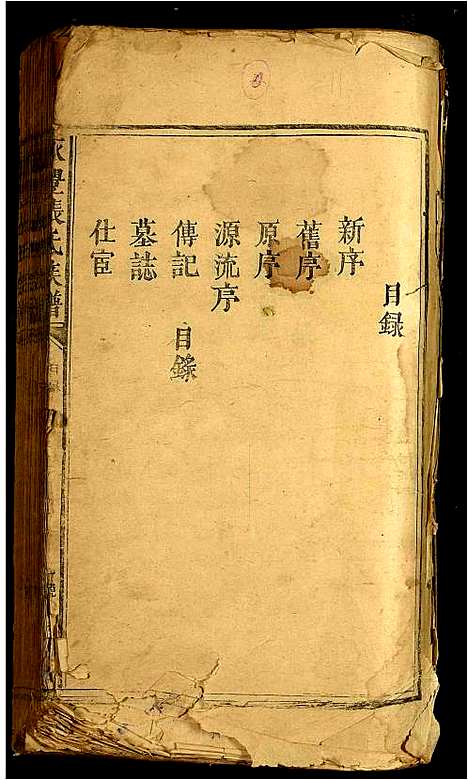 目录
新序
舊序
原序
源流序
傳記
目錄
墓誌
仕宦
張氏族譜